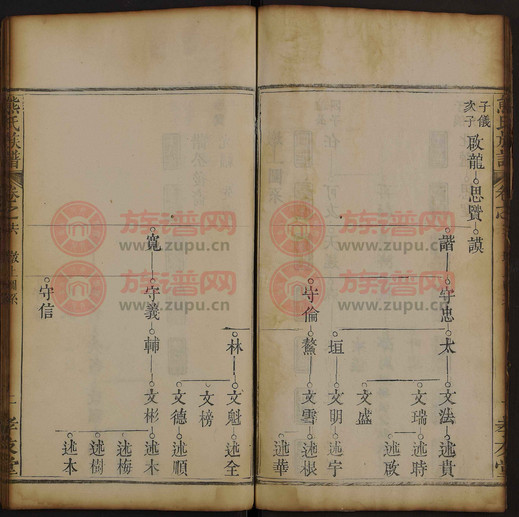 熊氏族譜
子儀
次子
啟龍
思賢
謨
諧
守忠
太
文法
述貴
文瑞
述時
述啟
文盛
垣
文明
述宇
守倫
鰲
文雲
述根
述華
林
文魁
述全
文榜
文德
述順
寬
守義
輔
文彬
述未
述梅
述樹
述本
守信
熊氏族譜
卷之六
孝友堂
族谱网
www.zupu.cn
族谱网
www.zupu.cn
族谱网
www.zupu.cn
族谱网
www.zupu.cn